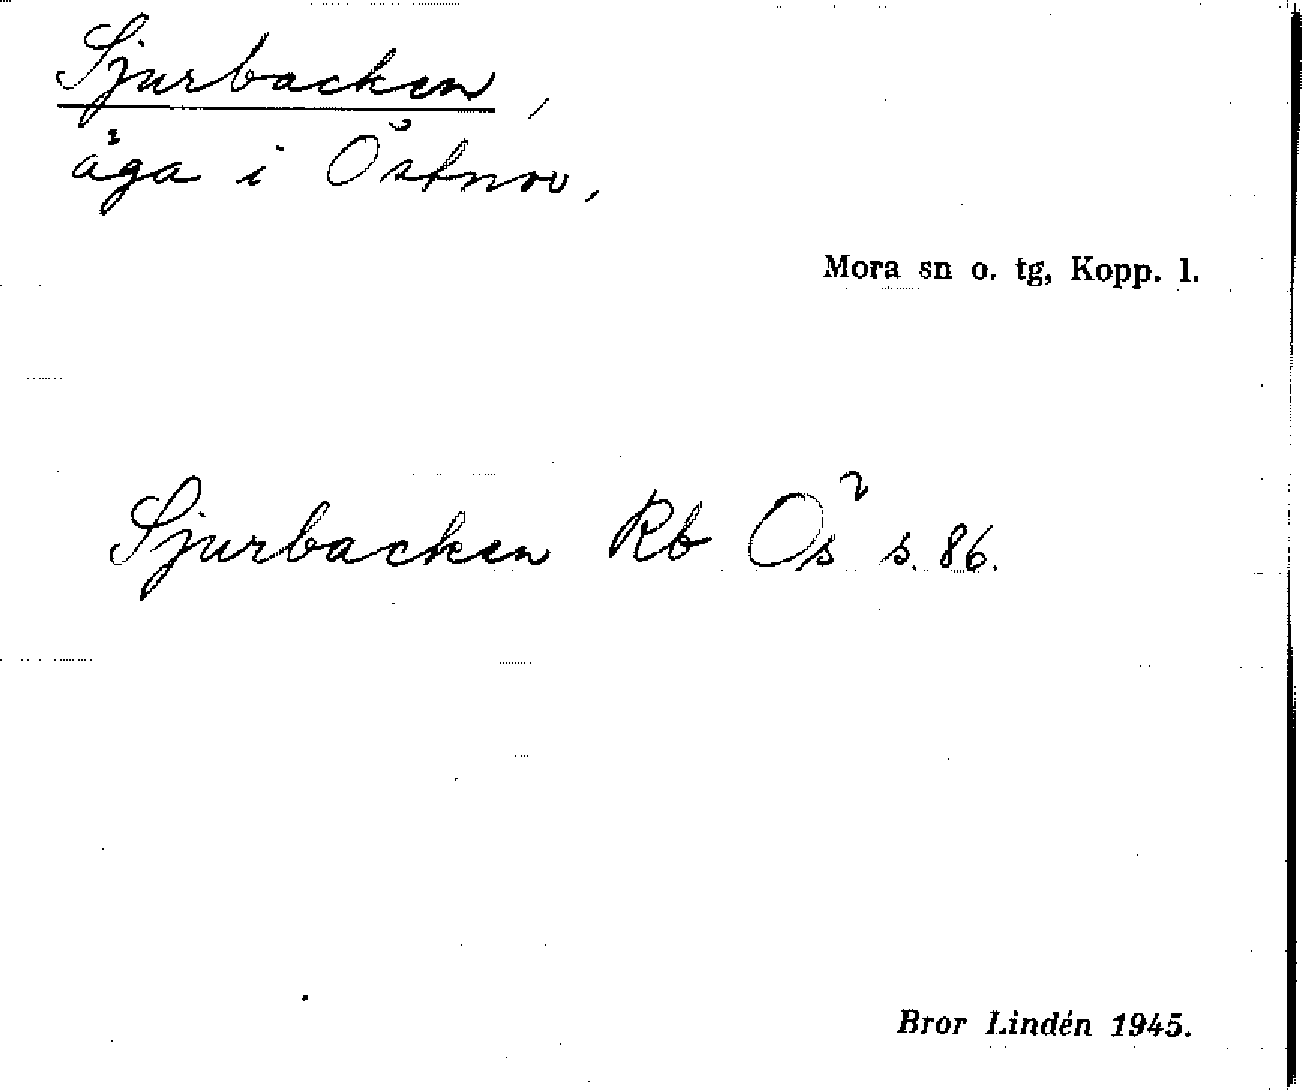 Sjurbacken,
äga i Östnor,
Mora sn o. tg, Kopp. l.
Sjurbacken Rb Ös s. 86.
Bror Lindén 1945.